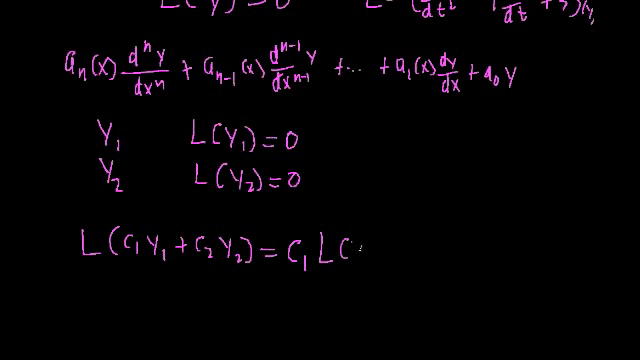 L(y)=0
aₙ(x) dⁿy/dxⁿ + aₙ₋₁(x) dⁿ⁻¹y/dxⁿ⁻¹ + ... + a₁(x) dy/dx + a₀ y
Y₁ L(Y₁)=0
Y₂ L(Y₂)=0
L(C₁Y₁+C₂Y₂)=C₁L(